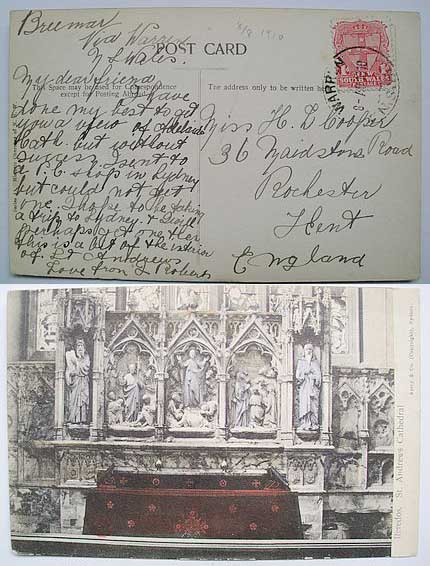 Breemar
Via Warren
N S Wales.
8/8 1910
POST CARD
This Space may be used for Correspondence
except for Posting Abroad.
The address only to be written here
My dear friend
I have
done my best to get
you a view of Adelaide
Cath. but without
success. I sent to
a P.C. shop in Sydney
but could not get
one. I hope to be taking
a trip to Sydney & I will
perhaps get one there
this is a bit of the interior
of St Andrews
Love from L Roberts
Miss H. L Cooper
36 Maidstone Road
Rochester
Kent
England
WARREN
SOUTH WALES
Reredos, St. Andrews Cathedral
& Co. (Copyright), Sydney.